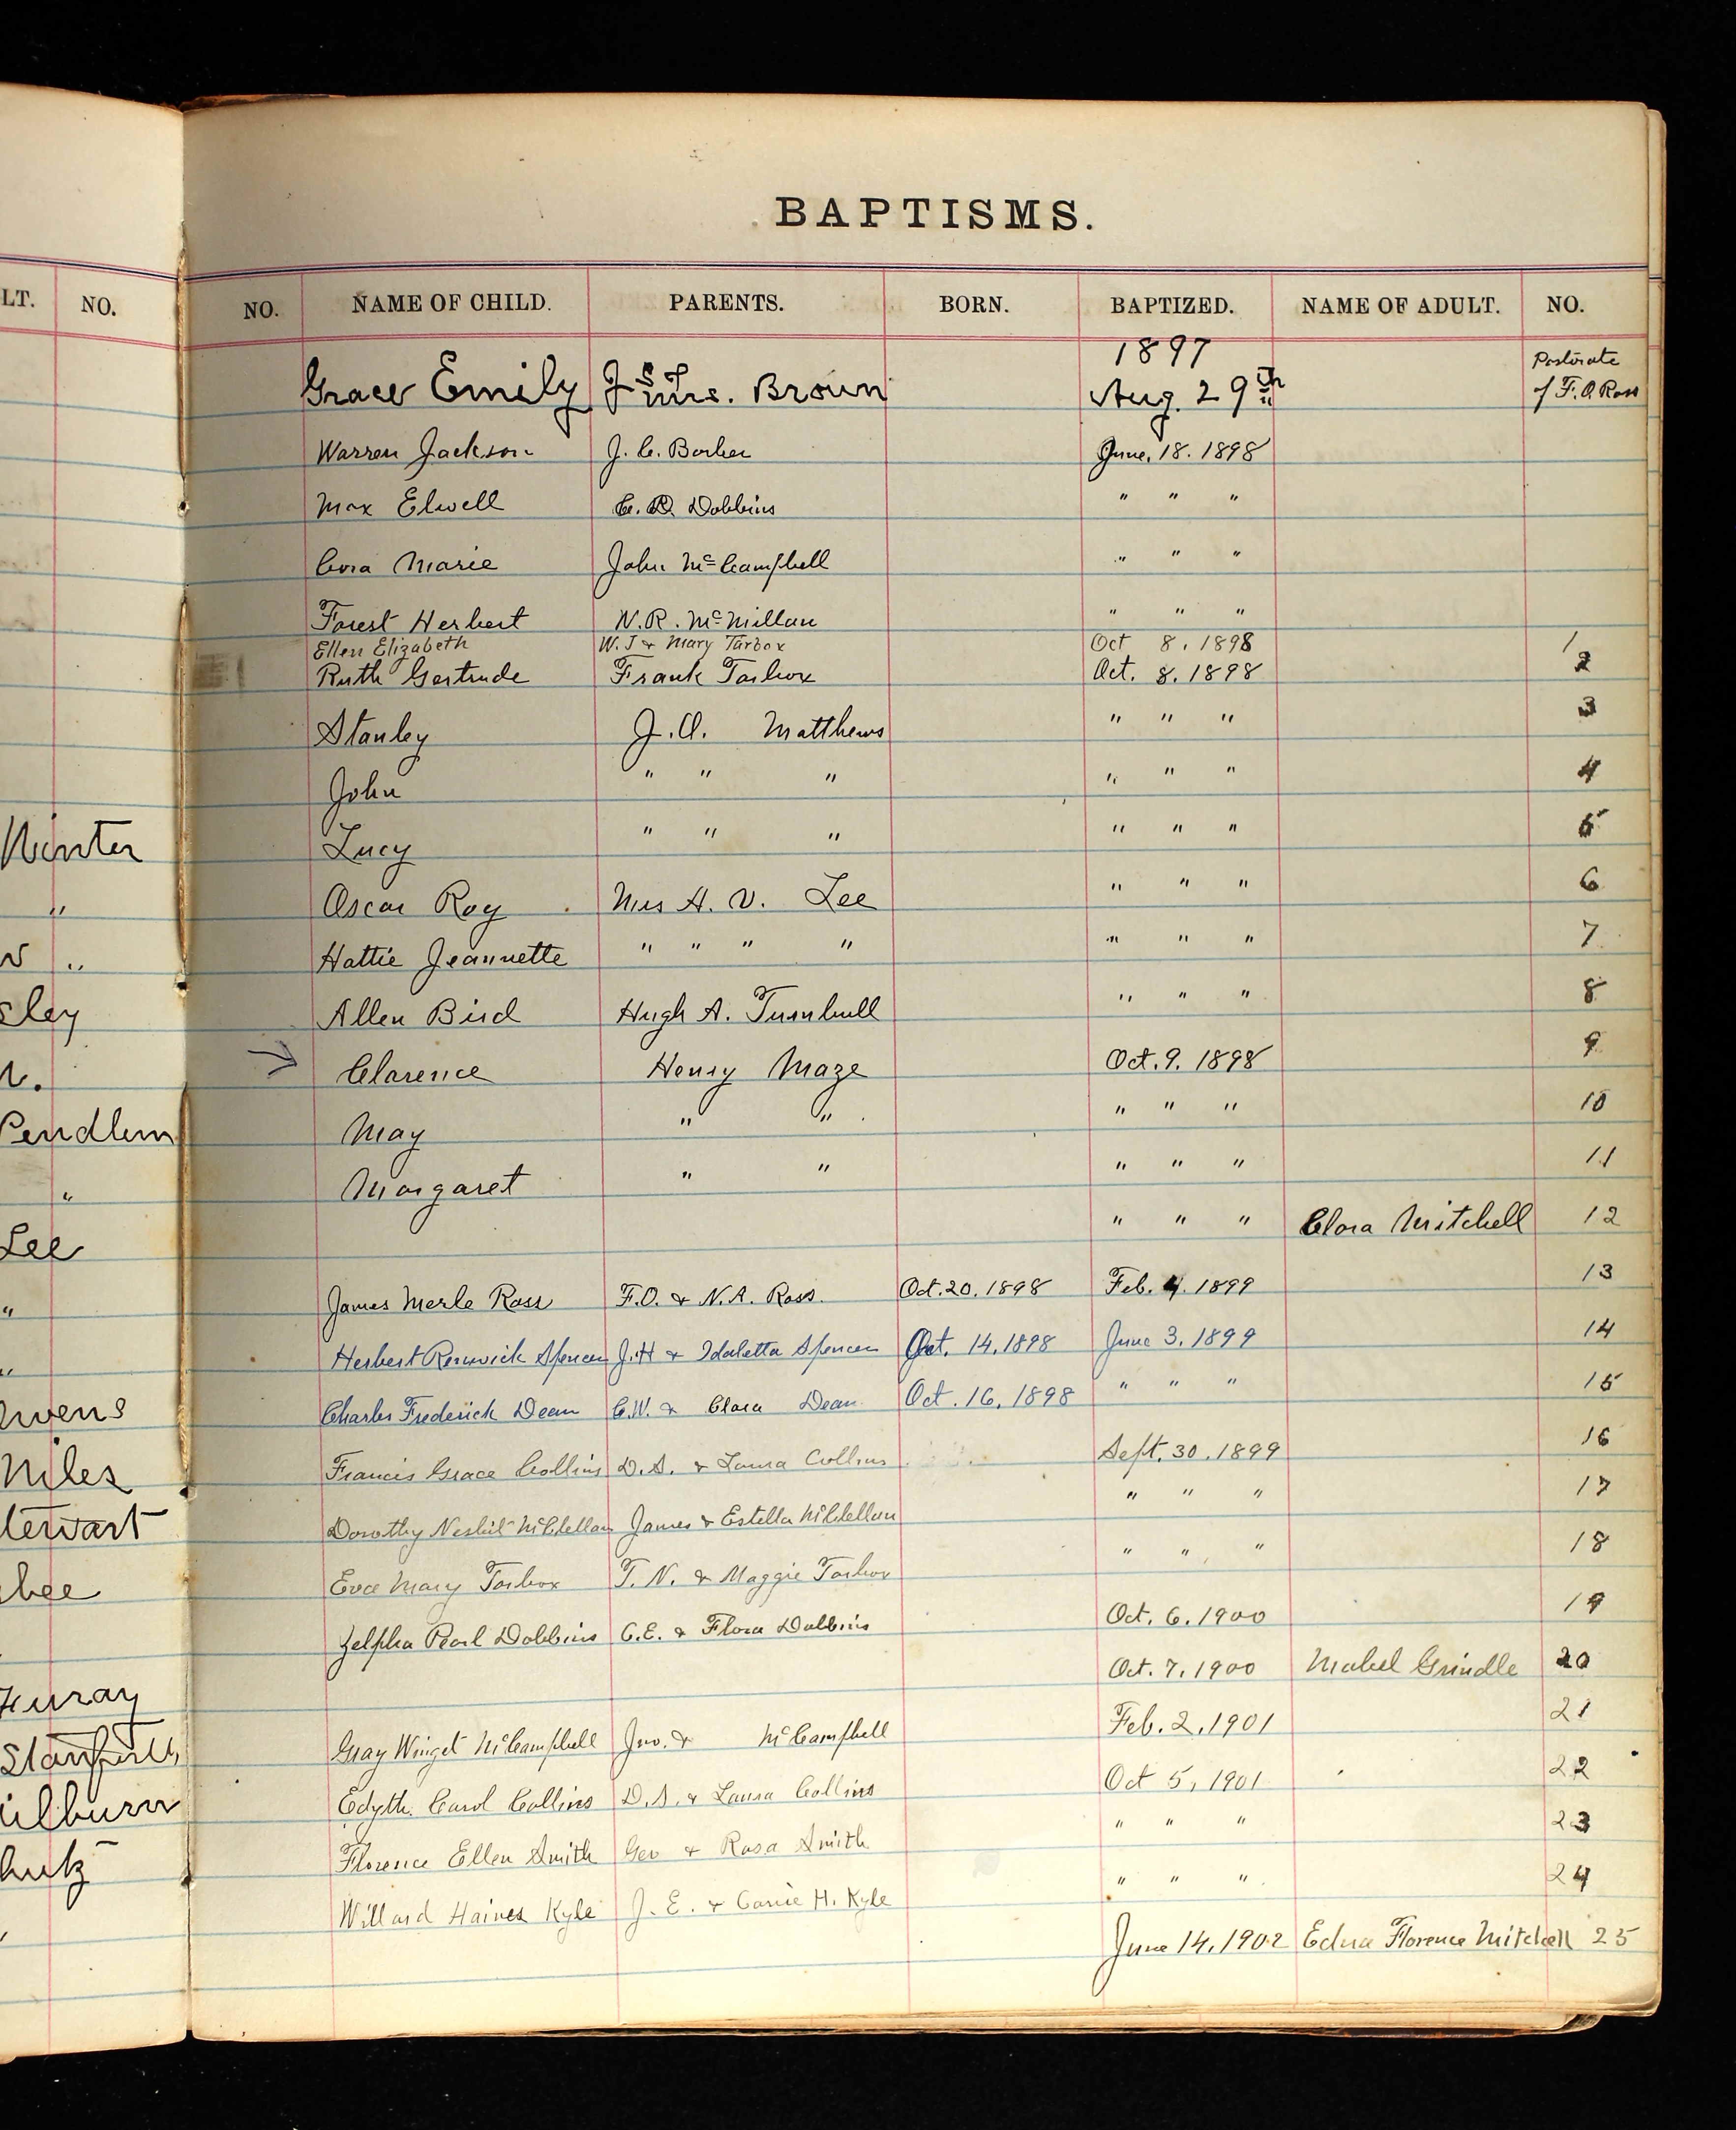 BAPTISMS.
LT. NO.
NO. NAME OF CHILD. PARENTS. BORN. BAPTIZED. NAME OF ADULT. NO.
1897
Grace Emily Brown Aug. 29th Pastorate of F.O. Ross
Warren Jackson J. C. Barber June. 18. 1898
Max Elwell Dobbins " " "
Cora Marie John McCampbell " " "
Forest Herbert W.R. McMillan " " "
Ellen Elizabeth W. J & Mary Tarbox Oct 8. 1898 1
Ruth Gertrude Frank Tarbox Oct. 8. 1898 2
Stanley J.A. Matthews " " " 3
John " " " " " " 4
Lucy " " " " " " 5
Oscar Roy Mrs A. V. Lee " " " 6
Hattie Jeannette " " " " " " " 7
Allen Bird Hugh A. Turnbull " " " 8
Clarence Henry Maze Oct. 9. 1898 9
May " " " " " 10
Margaret " " " " " 11
" " " Clora Mitchell 12
James Merle Ross F.O. & N.A. Ross. Oct. 20. 1898 Feb. 4. 1899 13
Herbert Renwick Spencer J.H & Idaletta Spencer Oct. 14. 1898 June 3. 1899 14
Charles Frederick Dean C.W. & Clara Dean Oct. 16. 1898 " " " 15
Francis Grace Collins D.S. & Laura Collins Sept. 30. 1899 16
Dorothy Nesbit McClellan James & Estella McClellan " " " 17
Eva Mary Tarbox T. N. & Maggie Tarbox " " " 18
Zelpha Pearl Dobbins C.E. & Flora Dobbins Oct. 6. 1900 19
Oct. 7. 1900 Mabel Grindle 20
Gray Winget McCampbell Jno. & McCampbell Feb. 2. 1901 21
Edyth Carol Collins D.S. & Laura Collins Oct 5, 1901 22
Florence Ellen Smith Geo & Rosa Smith " " " 23
Willard Haines Kyle J. E. & Carrie H. Kyle " " " 24
June 14. 1902 Edna Florence Mitchell 25
Winter
"
"
sley
Pendlum
"
Lee
"
"
wens
Niles
tewart
bee
uray
ilburn
hutz